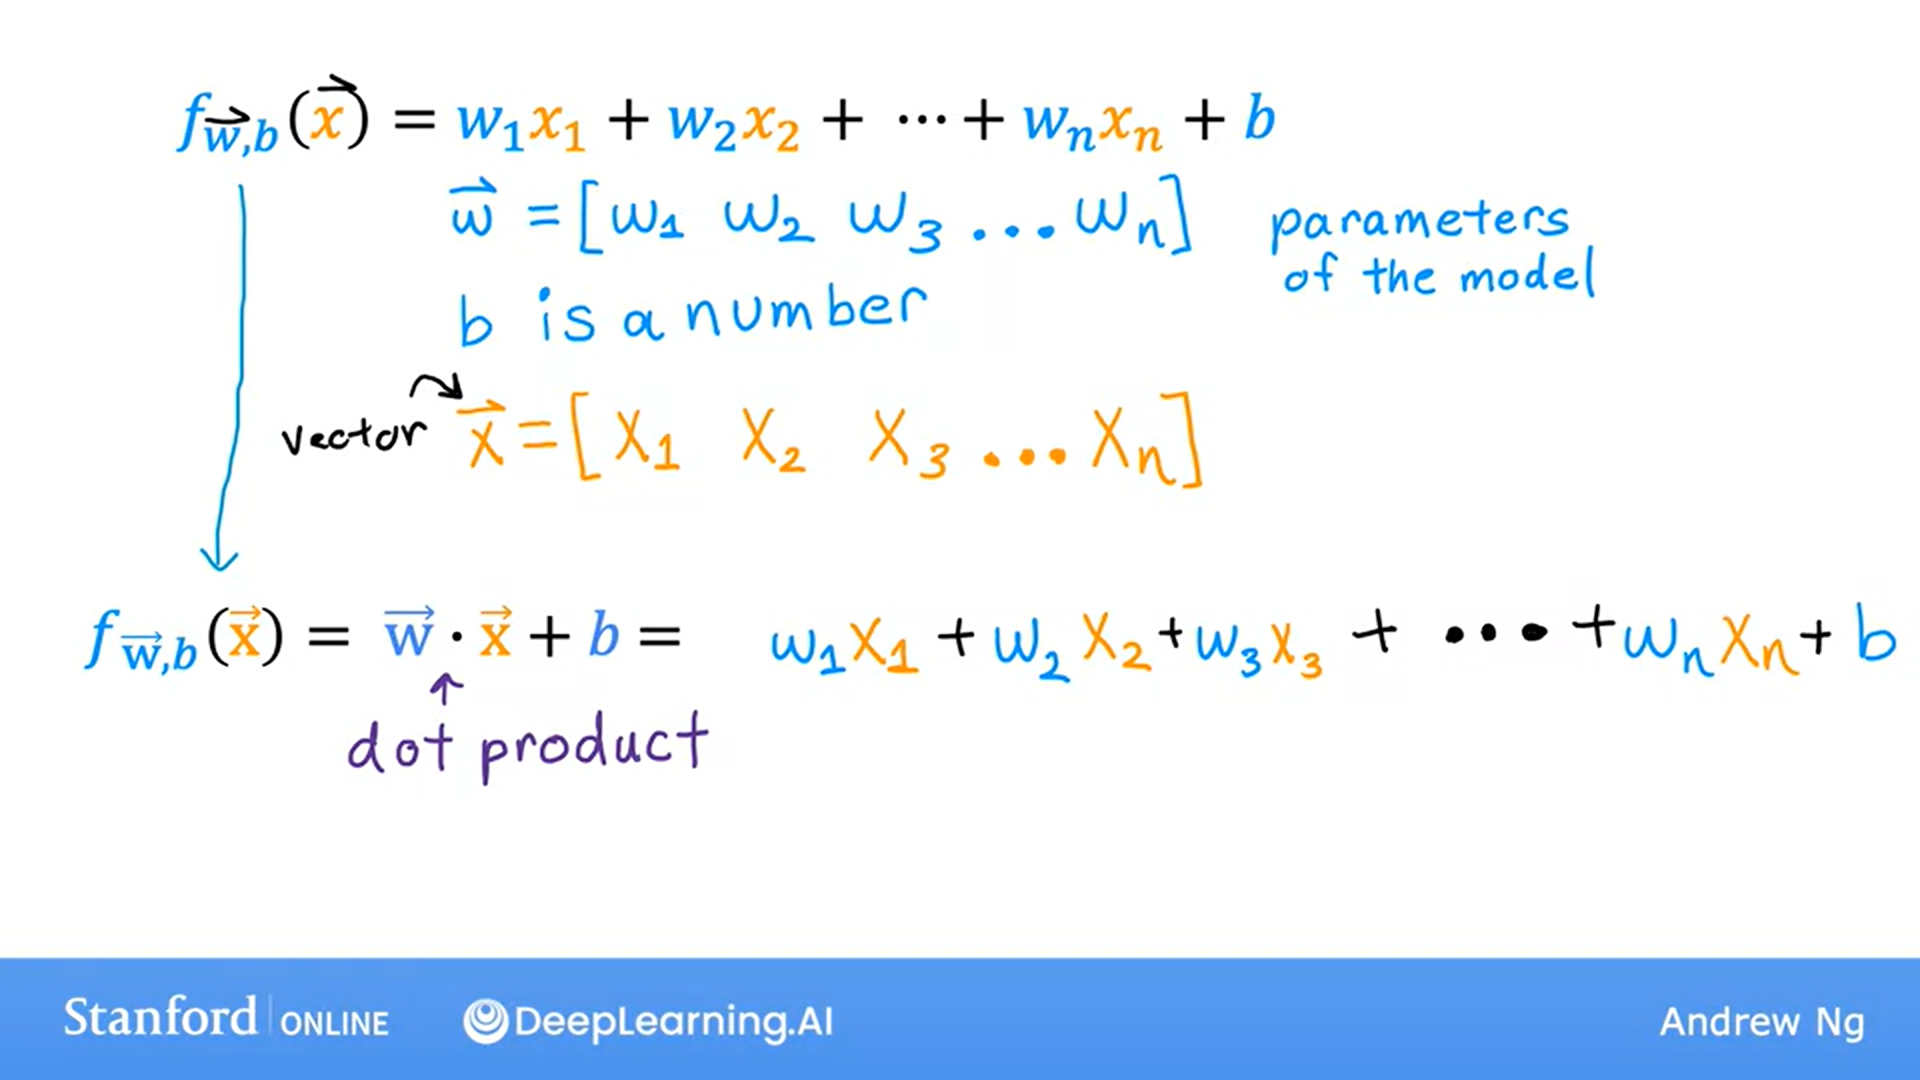 f_{\vec{w},b}(\vec{x}) = w_1x_1 + w_2x_2 + ⋯ + w_nx_n + b
\vec{w} = [w_1 w_2 w_3 ... w_n]
parameters
of the model
b is a number
vector \vec{x} = [x_1 x_2 x_3 ... x_n]
f_{\vec{w},b}(\vec{x}) = \vec{w} · \vec{x} + b = w_1x_1 + w_2x_2 + w_3x_3 + ... + w_nx_n + b
dot product
Stanford | ONLINE DeepLearning.AI Andrew Ng